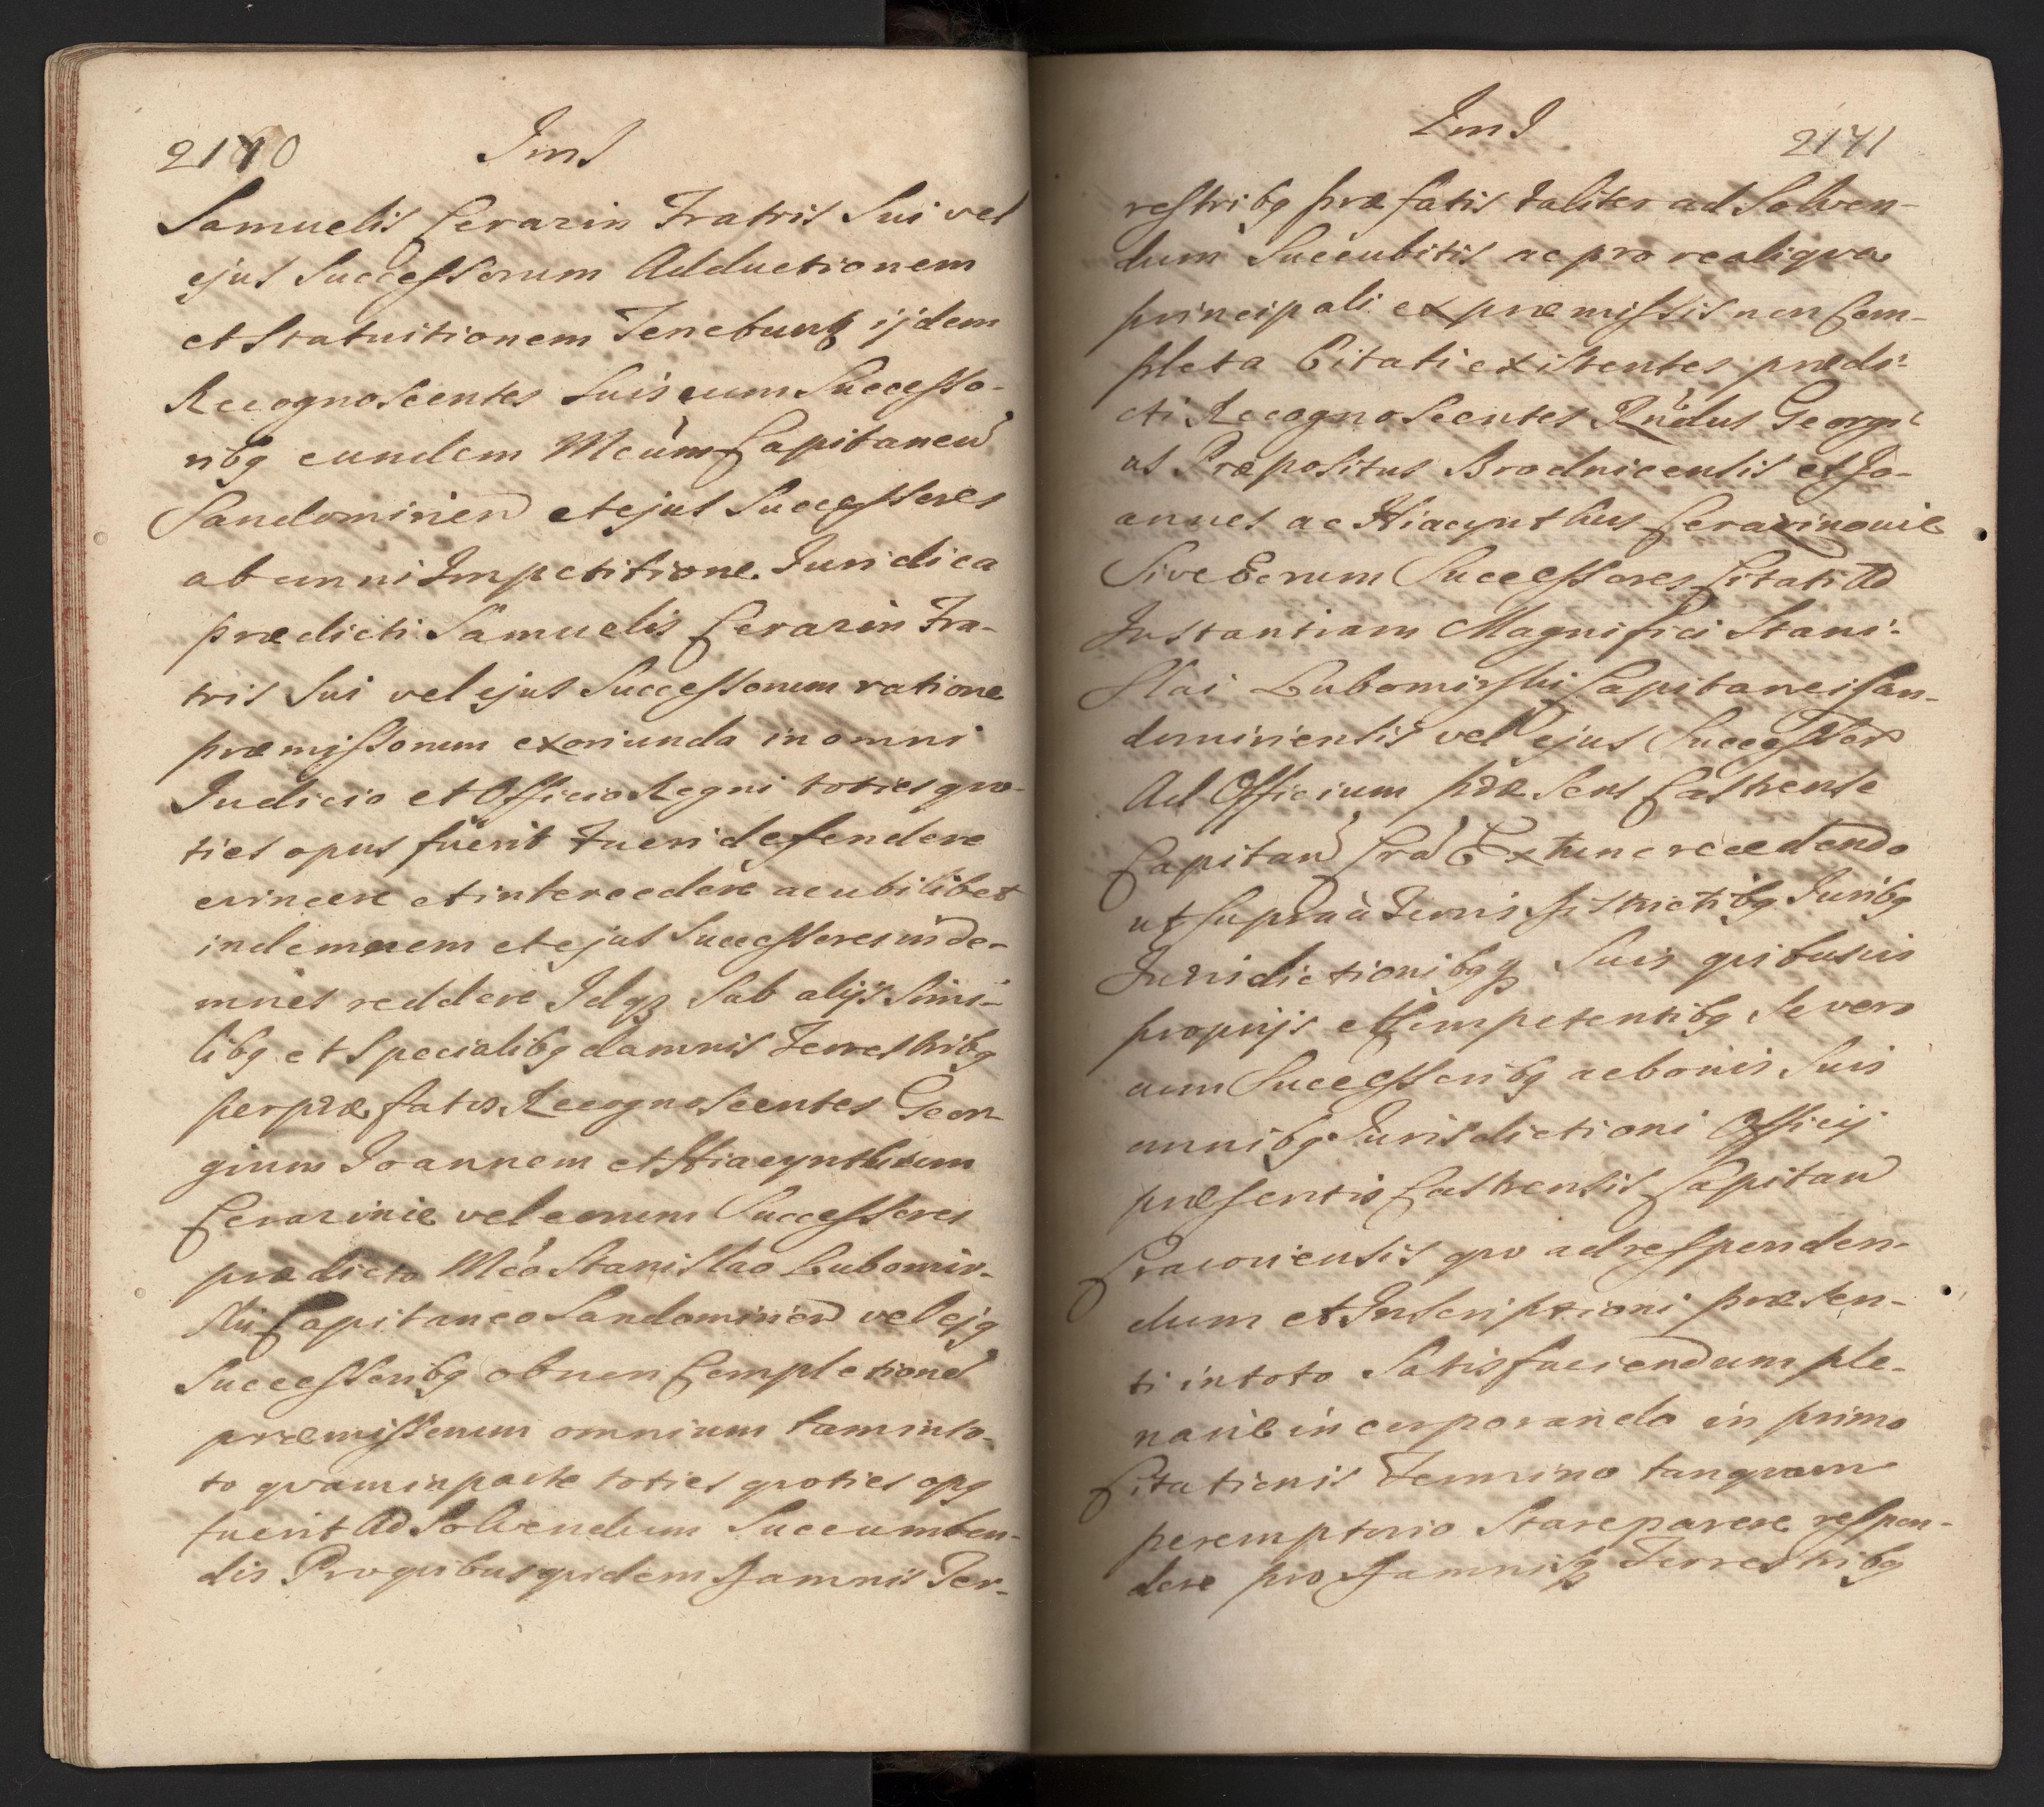 2170
Ims
Samuelis Cerazin Fratris Sui vel
ejus Successorum Adductionem
et Statuitionem Tenebunt ijdem
Recognoscentes Suis cum Successo-
ribg eundem Mcum Capitaneu
Sandomirien et ejus Successores
ab omni Impetitione Juridica
prædicti Samuelis Cerazin Fra-
tris Sui vel ejus Successorum ratione
præmissorum exoriunda in omni
Judicio et Officio Regni toties quo-
ties opus fuerit Tueri defendere
evincere et intercedere ac ubilibet
indemnem et ejus Successores inde-
mnes reddere Idq Sub alijs Simi-
libg et Specialibg damnis Terrestribg
per præfatos Recognoscentes Geor-
gium Joannem et Hiacynthum
Cerazinie vel eorum Successores
prædicto Mco Stanislao Lubomir-
skii Capitaneo Sandomirien vel ejg
Successoribg ob non Completione
præmissorum omnium tam in to-
to quam in parte toties quoties opg
fuerit Ad Solvendum Succumben-
dis Pro quibus quidem Damnis Ter-
Ims
2171
restribg præfatis taliter ad Solven-
dum Succubitis ac pro re aliqua
principali ex præmissis non Com-
pleta Citati existentes prædi-
cti Recognoscentes Rndus Georgi-
us Præpositus Brodnicensis et Jo-
annes ac Hiacynthus Cerazinovie
Sive Eorum Successores Citati Ad
Instantiam Magnifici Stani-
slai Lubomirski Capitanei San-
domiriensis vel ejus Successor
Ad Officium præsens Castrense
Capitan Cra Extunc recedendo
ut supra à Terris Districtibg Juribg
Juridictionibgq Suis quibusvis
proprijs et Competentibg Se vero
cum Successoribg ac bonis Suis
omnibg Jurisdictioni Officij
præsentis Castrensis Capitan
Cracoviensis quo ad responden-
dum et Inscriptioni præsen-
ti in toto Satisfaciendum ple-
narie incorporando in primo
Citationis Termino tanquam
peremptorio Stare parere respon-
dere pro Damnisq Terrestribg